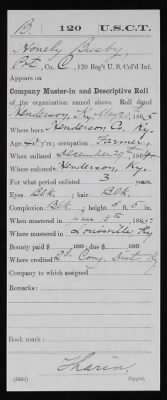 B. 120 U.S.C.T.
Busby
Pvt., Co. C, 120 Reg't U. S. Col'd Inf.
Appears on
Company Muster-in and Descriptive Roll
of the organization named above. Roll dated
Henderson, Ky., 1865
Where born Henderson Co., Ky.
Age y'rs; occupation Farmer
When enlisted December
Where enlisted Henderson, Ky.
For what period enlisted 3 years.
Eyes Blk.; hair Blk.
Complexion Blk; height 5 ft. 5 in.
When mustered in 186
Where mustered in Louisville Ky
Bounty paid $ 100; due $ 100
Where credited 2d. Cong. Dist. Ky
Company to which assigned
Remarks:
Book mark:
Copyist.